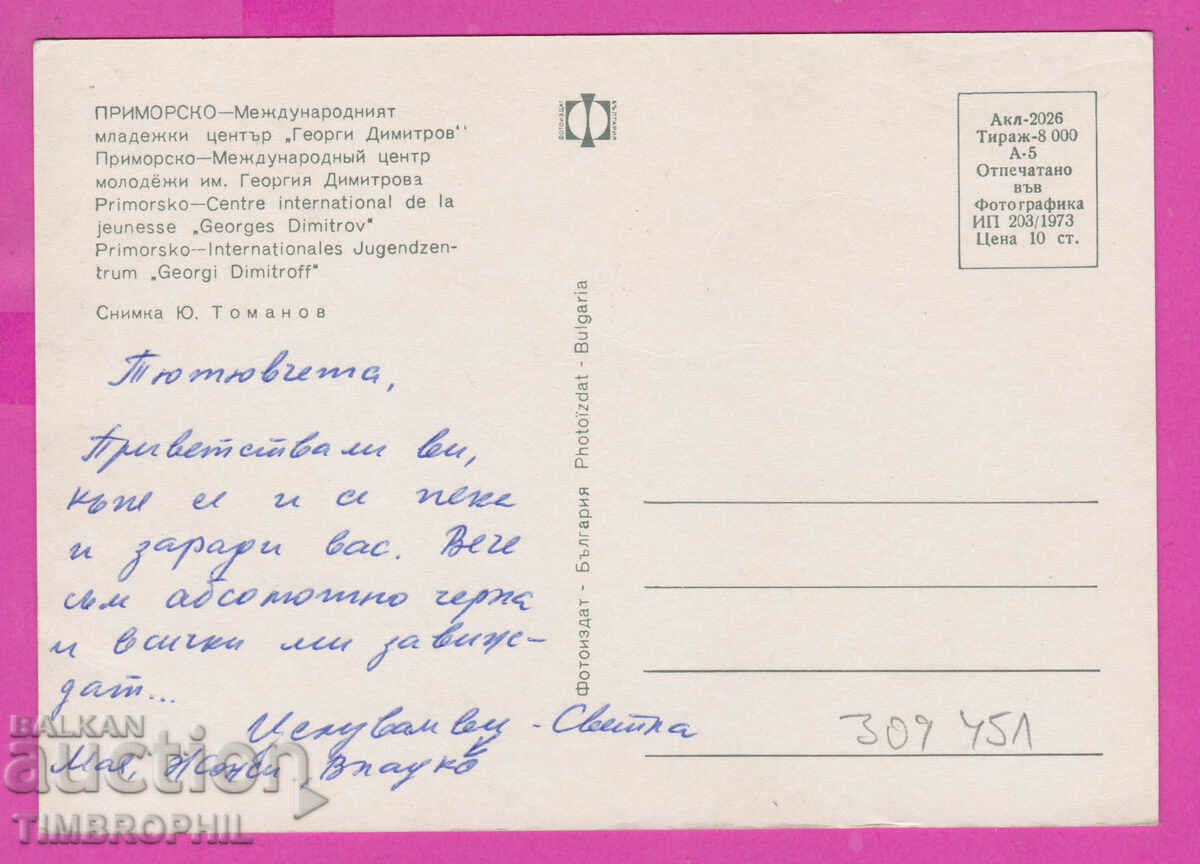 ПРИМОРСКО—Международният
младежки център „Георги Димитров“
Приморско—Международный центр
молодёжи им. Георгия Димитрова
Primorsko—Centre international de la
jeunesse „Georges Dimitrov“
Primorsko—Internationales Jugendzen-
trum „Georgi Dimitroff“
Снимка Ю. Томанов
ФОТОИЗДАТ
БЪЛГАРИЯ
Акл-2026
Тираж-8 000
А-5
Отпечатано
във
Фотографика
ИП 203/1973
Цена 10 ст.
Фотоиздат - България Photoïzdat - Bulgaria
Тютювчета,
Приветствали ви,
къпе се и се пека
и заради вас. Вече
съм абсолютно черна
и всички ми завиж-
дат...
Целувам ви - Светла
Мая, Владко
309 451
BALKAN
auction
TIMBROPHIL